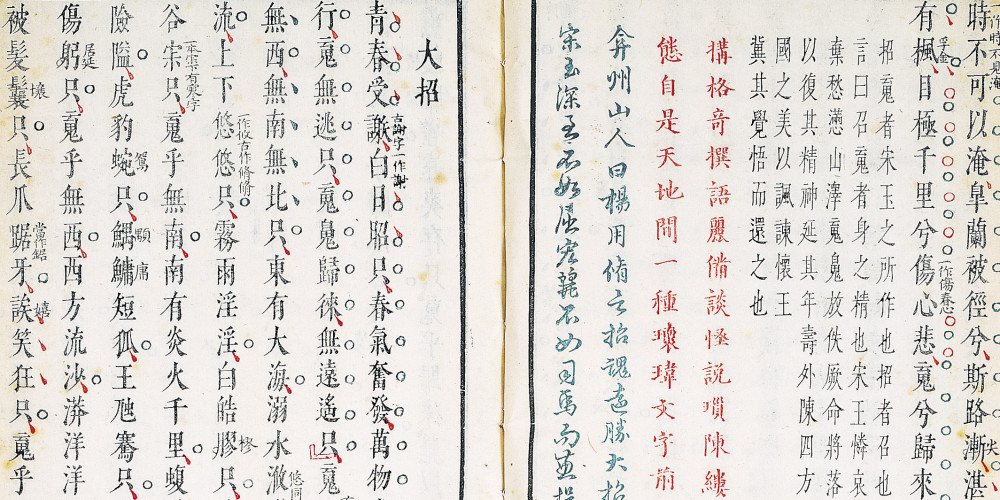 時不可以淹皐蘭被徑兮斯路漸湛
有楓目極千里兮傷心悲䰟兮歸來
招䰟者宋玉之所作也招者召也
言曰召䰟者身之精也宋玉憐哀
棄愁懣山澤䰟鬼放佚厥命將落
以復其精神延其年壽外陳四方
國之美以諷諫懷王
冀其覺悟而還之也
構格奇撰語麗備談怪説瑣陳縷
態自是天地間一種瓌瑋文字前
弇州山人曰楊用脩言招魂遠勝大招
宋玉深至不如屈宏麗不如司馬而兼
大招
青春受謝白日昭只春氣奮發萬物
言謝字一作謝
行䰟無逃只䰟鬼歸徠無遠遙只䰟
無西無南無北只東有大海溺水浟
流上下悠悠只霧雨淫淫白皓膠只
一作攸古作脩脩
膠
谷宗只䰟乎無南南有炎火千里蝮
險隘虎豹蜿只鰅鱅短狐王虺騫只
鴛
顒
庸
傷躬只䰟乎無西西方流沙漭洋洋
被髮鬤只長爪踞牙誒笑狂只䰟乎
當作鋸
嬉